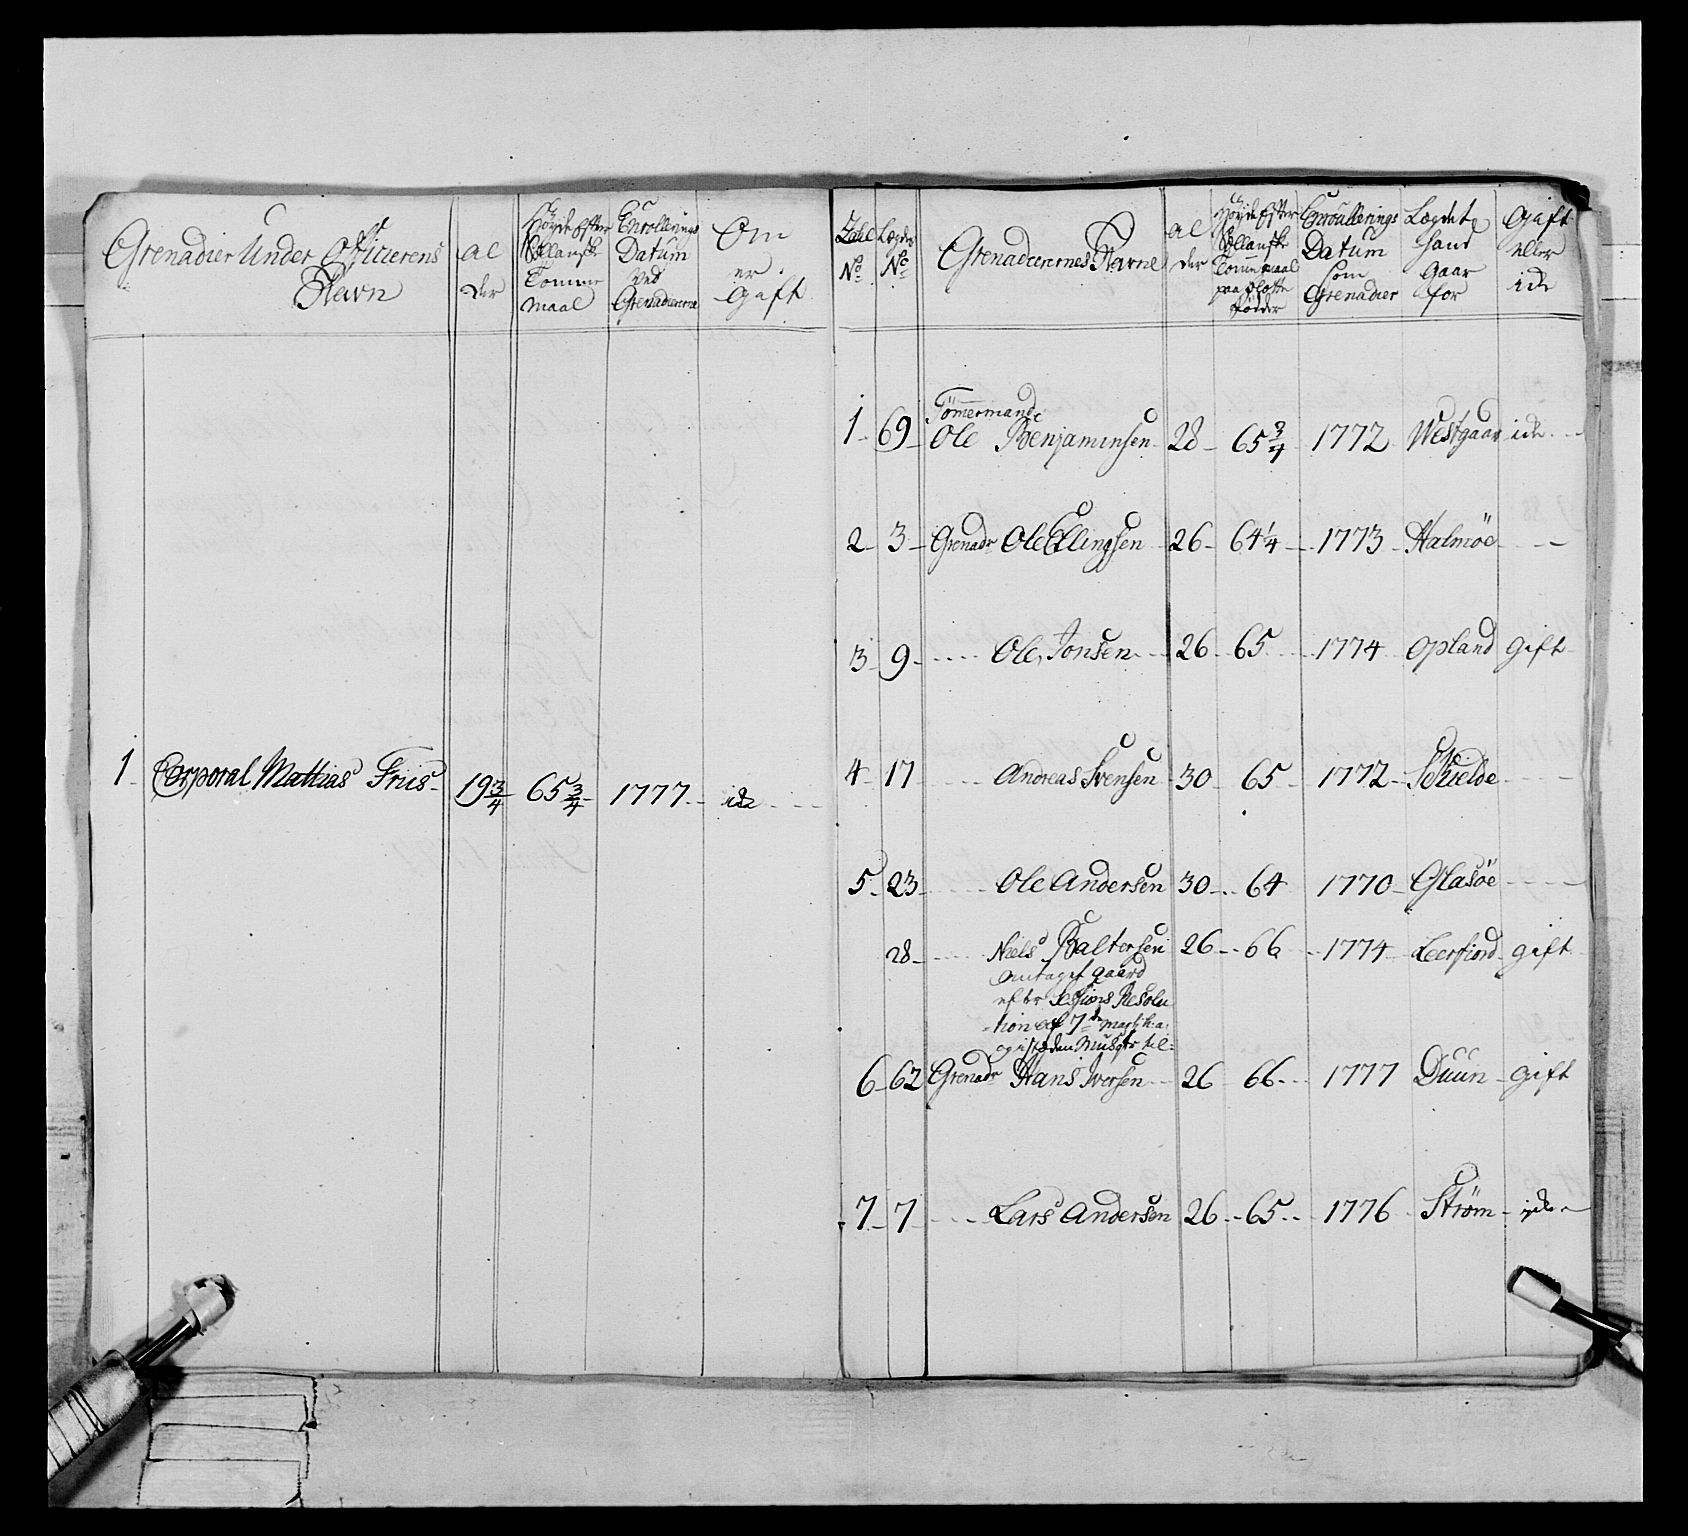 Grenadier Under Officerens
Navn
Al
der
Høyde efter
Siællansk
Tomme
maal
Enrollerings
Datum
ved
Grenadererne
Om
er
gift
1 Corporal Mathias Friis 19 3/4 65 3/4 1777 icke
Tahl
No
Lægds
No
Grenaderernes Navne
Al
der
Høyde efter
Siællansk
Tomme maal
paa blotte
fødder
Enroullerings
Datum
som
Grenadier
Lægdet
hand
gaar
for
gift
eller
icke
Tömermand
1 69 Ole Benjaminsen 28 65 3/4 1772 Westgaar icke
2 3 Grenadr Ole Ellingsen 26 64 1/4 1773 Halmöe
3 9 Ole Jonsen 26 65 1774 Opland gift
4 17 Andreas Svensen 30 65 1772 Schielde
5 23 Ole Andersen 30 64 1770 Glasöe
28 Niels Baltersen 26 66 1774 Leerfiord gift
antaget gaard
efter Sessions Resolu
tion af 7de Martj h: a:
og isteden Musqtr til:
6 62 Grenadr Hans Iversen 26 66 1777 Duun gift
7 7 Lars Andersen 26 65 1776 Ström icke